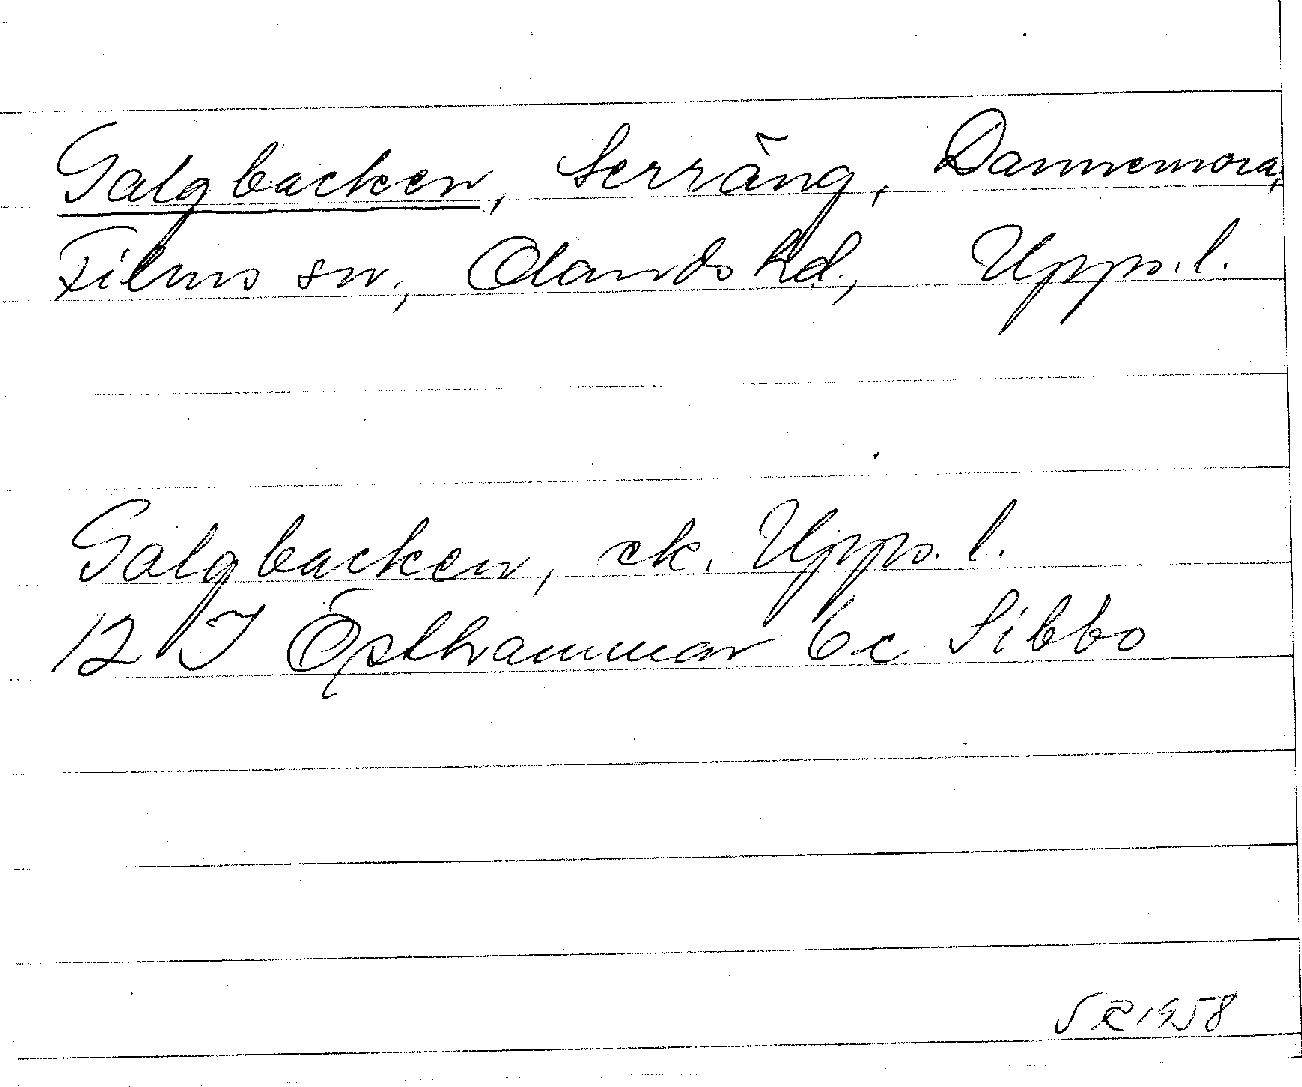 Galgbacken, Serräng, Dannemora,
Films sn, Olands hd., Upps. l.
Galgbacken, ek. Upps. l.
12 I Östhammar 6c Sibbo
SR 1958